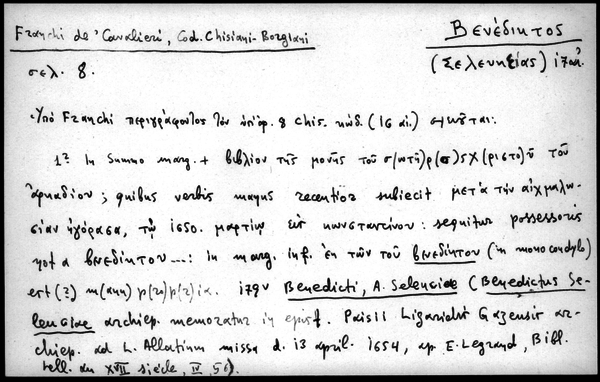 Franchi de' Cavalieri, Cod. Chisiani-Borgiani
Βενέδικτος
(Σελευκείας)
σελ. 8.
Ὑπὸ Franchi περιγράφοντος τὸν ὑπ' ἀρ. 8 Chis. κώδ. (16 αἰ.)
1? In summo marg. + βιβλίον τῆς μονῆς τοῦ σ(ωτῆ)ρ(ο)ς Χ(ριστο)ῦ τοῦ
ἀρκαδίου ; quibus verbis manus recentior subiecit μετὰ τὴν αἰχμαλω-
σίαν ἠγόρασα, τῷ 1650. μαρτίῳ εἰς κωνσταντίνου : sequitur possessoris
nota βενεδίκτου ...: in marg. inf. ἐκ τῶν τοῦ βενεδίκτου (in monocondylo)
est (?)
Benedicti, A. Seleuciae (Benedictus Se-
leuciae archiep. memoratur in epist. Paisii Ligaridis Gazensis ar-
chiep. ad L. Allatium missa d. 13 april. 1654, ap. E. Legrand, Bibl.
hell. du XVII siècle, IV, 56).